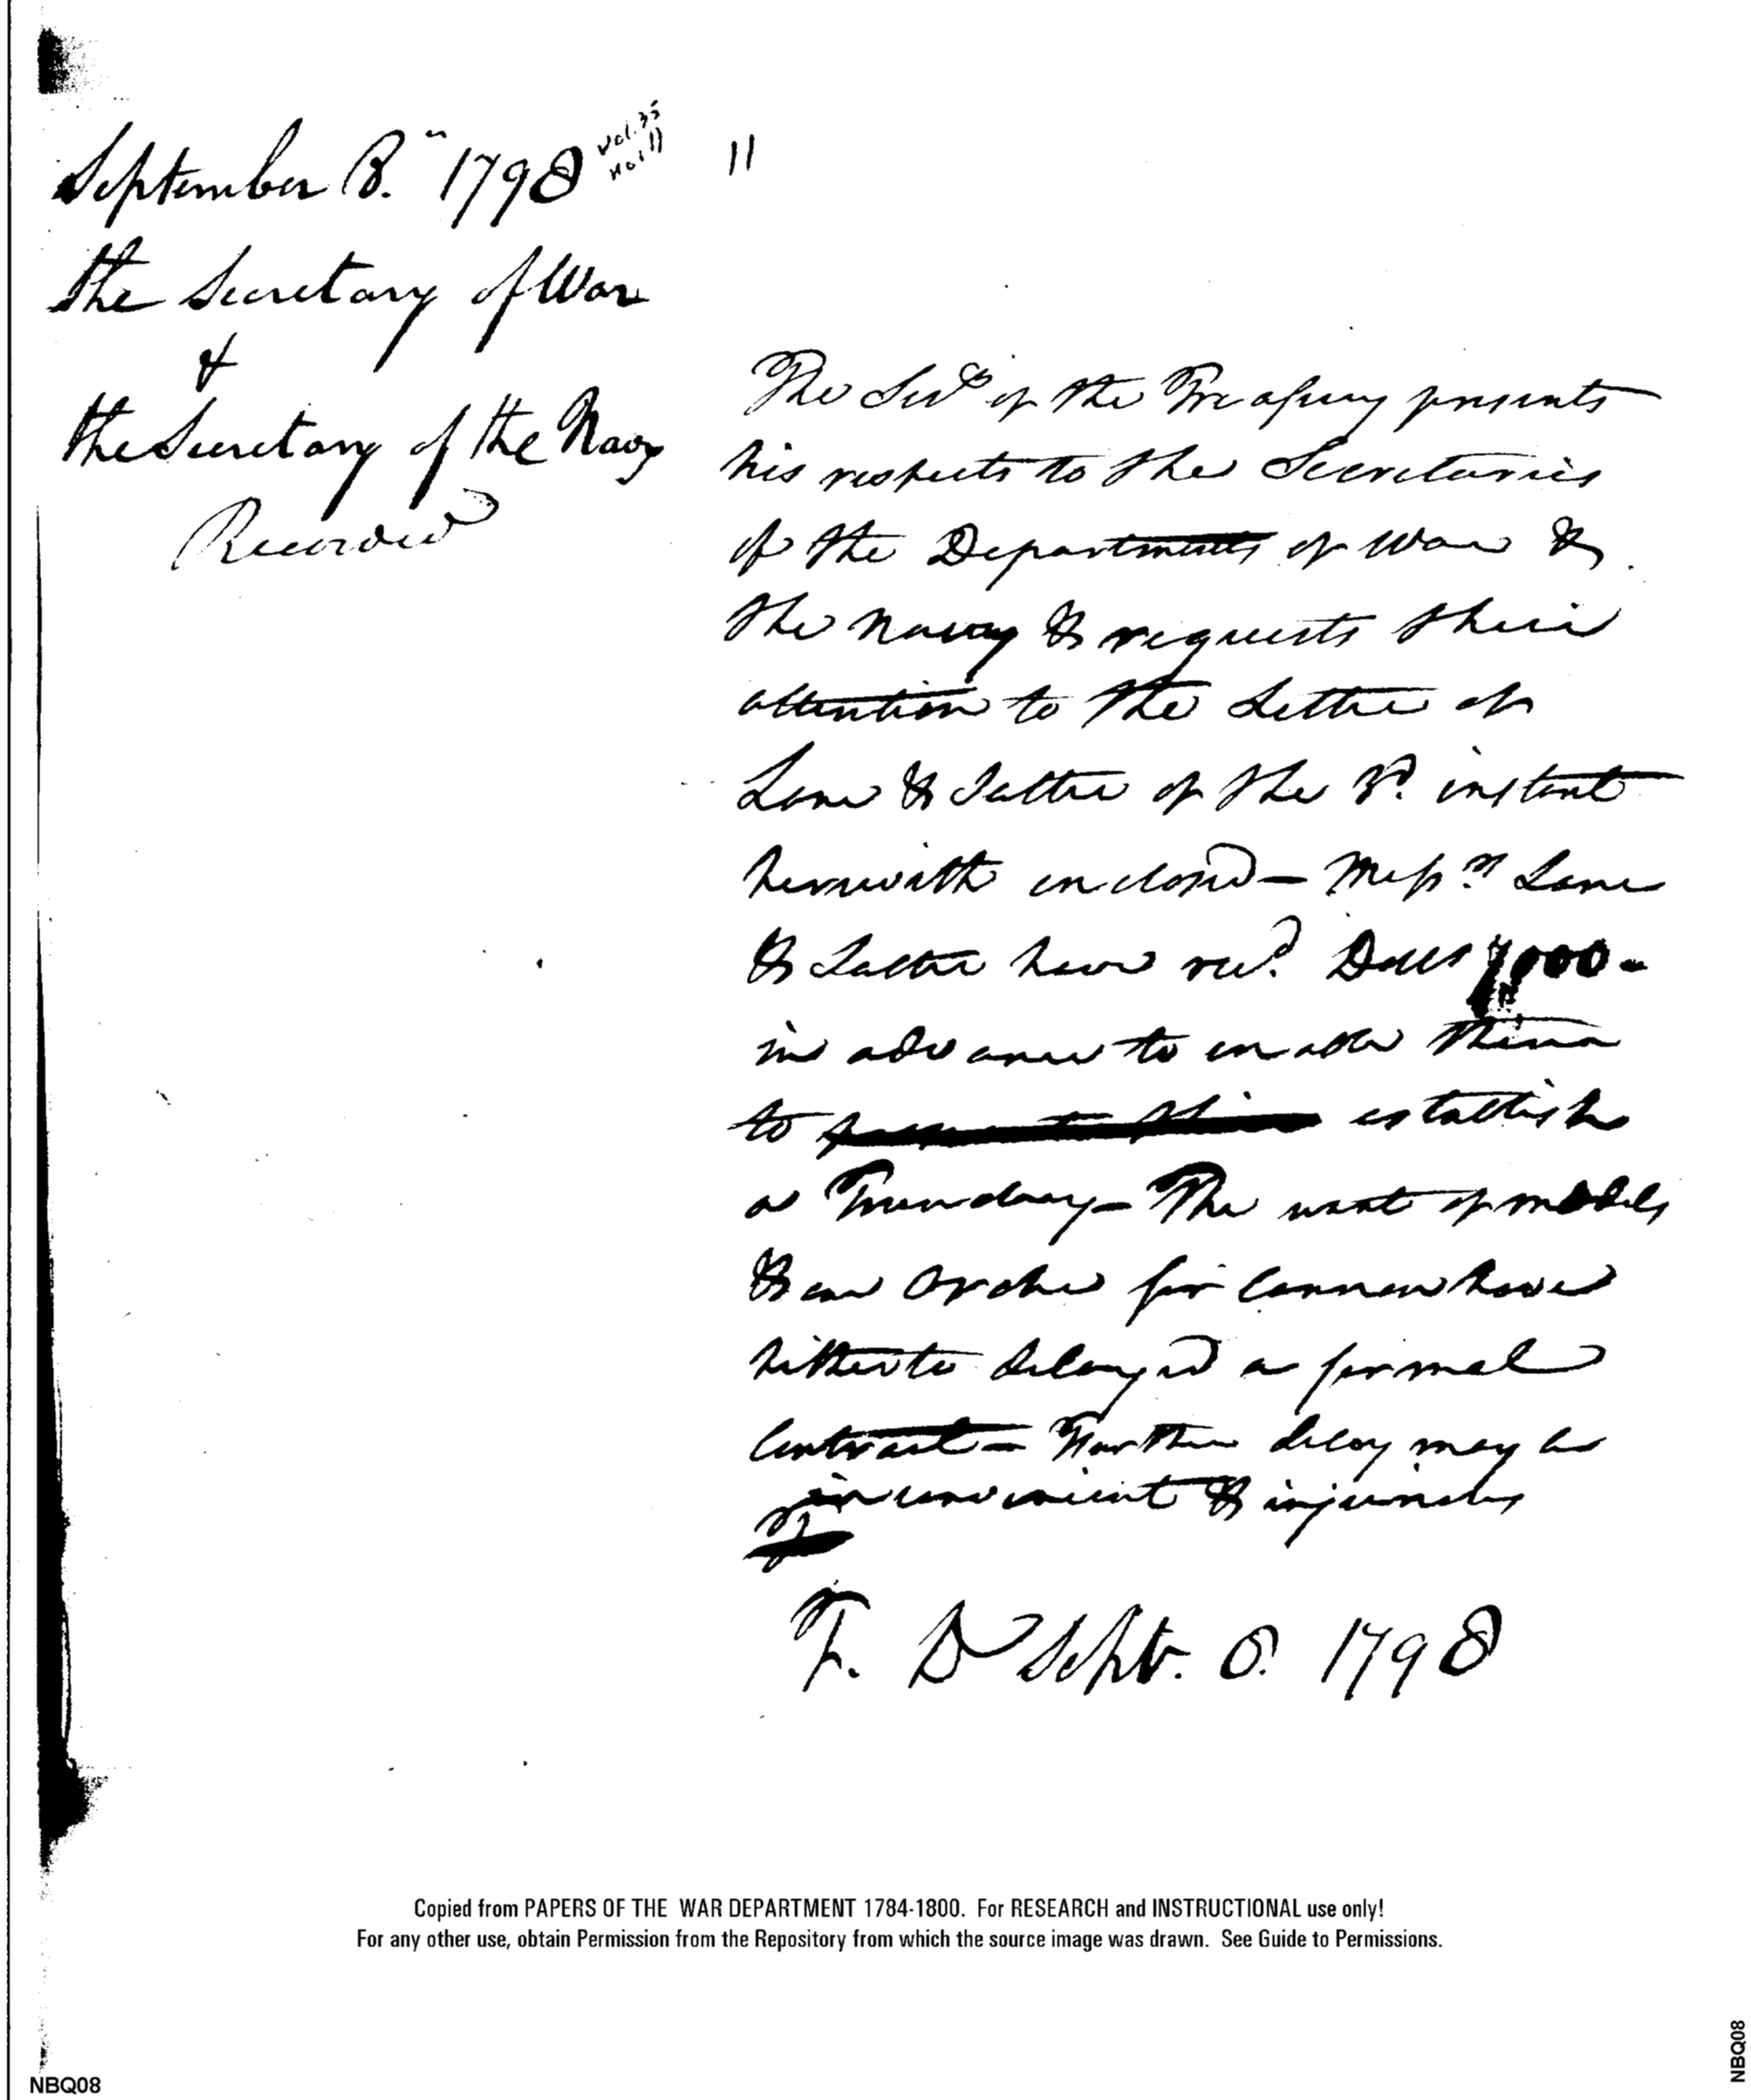 September 8.th 1798
Vol. 35
No. 11
11
the Secretary of War
&
the Secretary of the Navy
Recorded
The Secy of the Treasury presents
his respects to the Secretaries
of the Departments of War &
the Navy & requests their
attention to the Letter of
Lane & Salter of the 3d. instant
herewith enclosed — Messrs Lane
& Salter have recd. Dolls 7,000 -
in advance to enable them
to establish
a Foundery — The want of models
& an order for Cannon have
hitherto delayed a formal
Contract — Further delay may be
inconvenient & injurious
T. D Sept. 8. 1798
Copied from PAPERS OF THE WAR DEPARTMENT 1784-1800. For RESEARCH and INSTRUCTIONAL use only!
For any other use, obtain Permission from the Repository from which the source image was drawn. See Guide to Permissions.
NBQ08
NBQ08